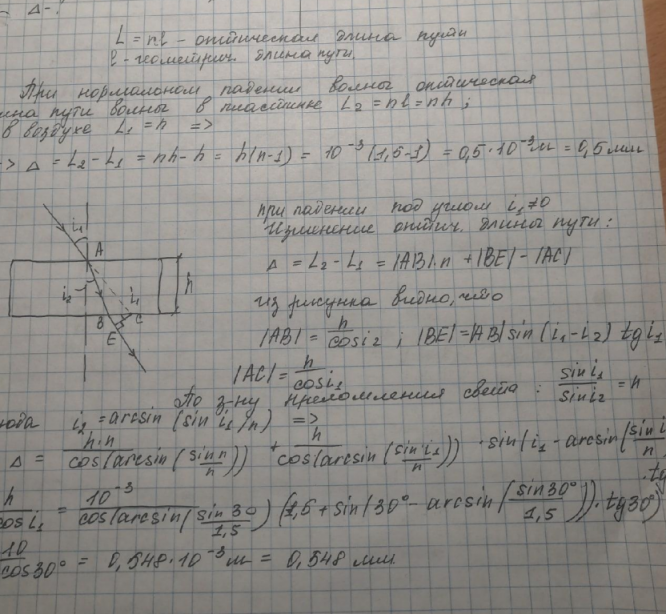 Δ-?
L = nl - оптическая длина пути
l - геометрич. длина пути.
При нормальном падении волны оптическая
ина пути волны в пластинке L₂ = nl = nh ;
в воздухе L₁ = h =>
=> Δ = L₂ - L₁ = nh - h = h(n-1) = 10⁻³ (1,5-1) = 0,5·10⁻³ м = 0,5 мм
при падении под углом i₁ ≠ 0
Изменение оптич. длины пути:
Δ = L₂ - L₁ = |AB|·n + |BE| - |AC|
из рисунка видно, что
|AB| = h/cos i₂ ; |BE| = |AB| sin (i₁ - i₂) tg i₁
|AC| = h/cos i₁
i₁
A
i₂
i₁
h
B
C
E
По з-ну преломления света : sin i₁/sin i₂ = n
юда i₂ = arcsin (sin i₁/n) =>
Δ = h·n/cos(arcsin (sin n/n)) + h/cos(arcsin (sin i₁/n)) · sin(i₁ - arcsin(sin i/n)
·tg
h/cos i₁ = 10⁻³/cos(arcsin(sin 30/1,5)) (1,5 + sin(30° - arcsin(sin 30°/1,5))·tg 30°)
10/cos 30° = 0,548·10⁻³ м = 0,548 мм.